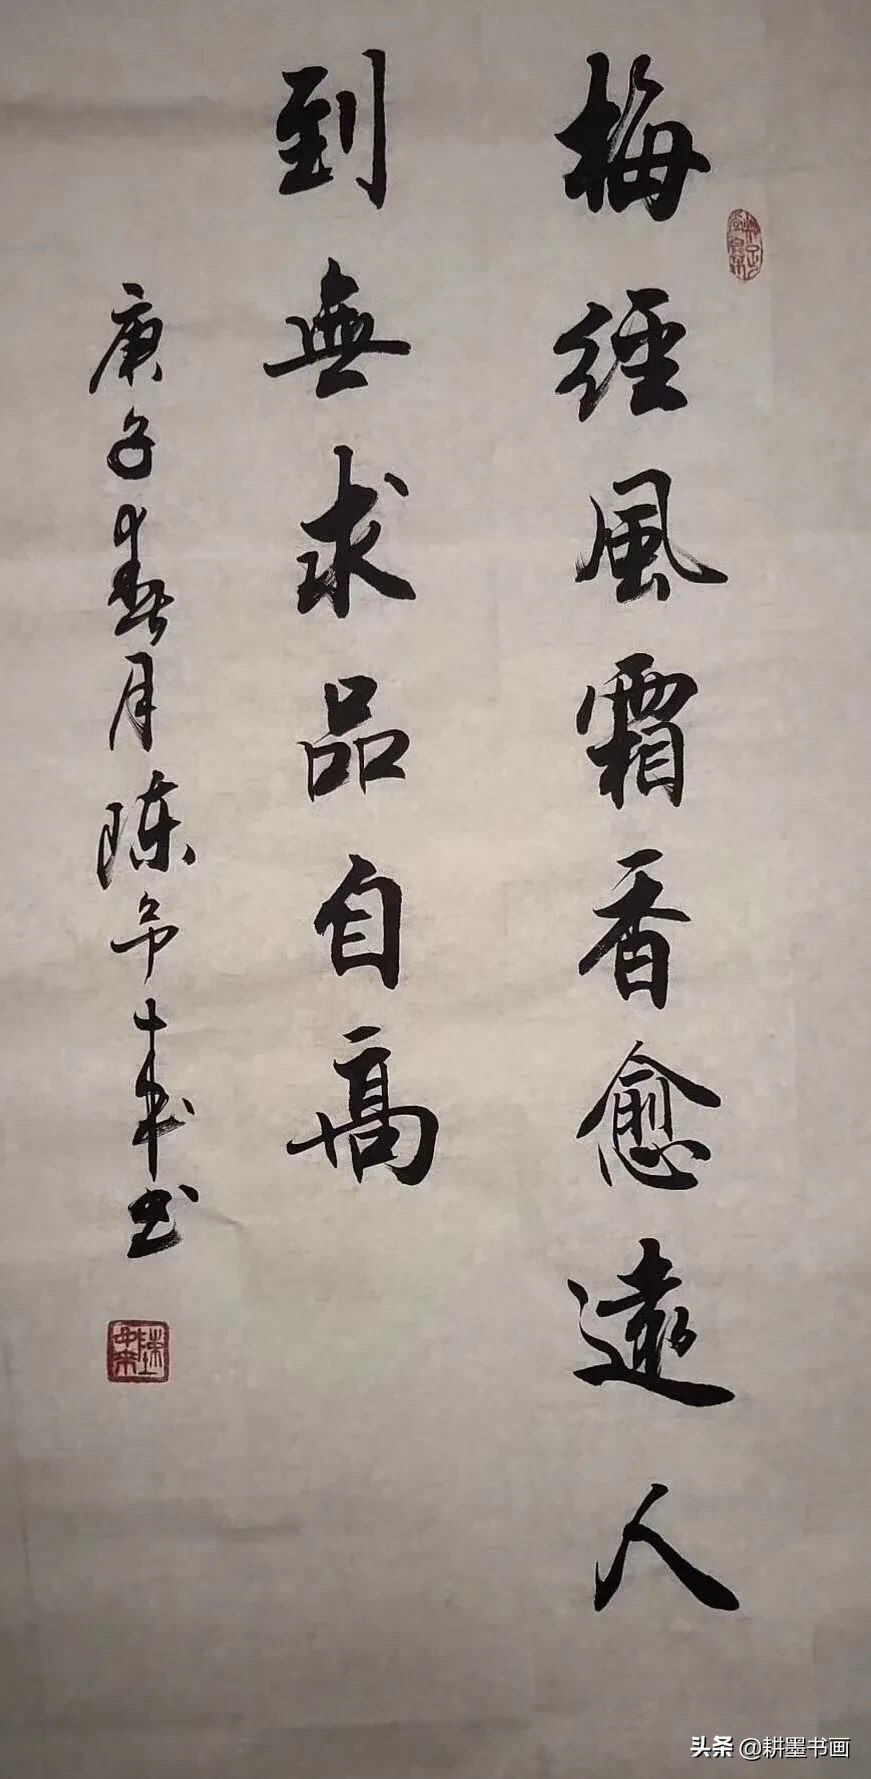 梅經風霜香愈遠人
到無求品自高
庚子春月陳
书
头条 @耕墨书画